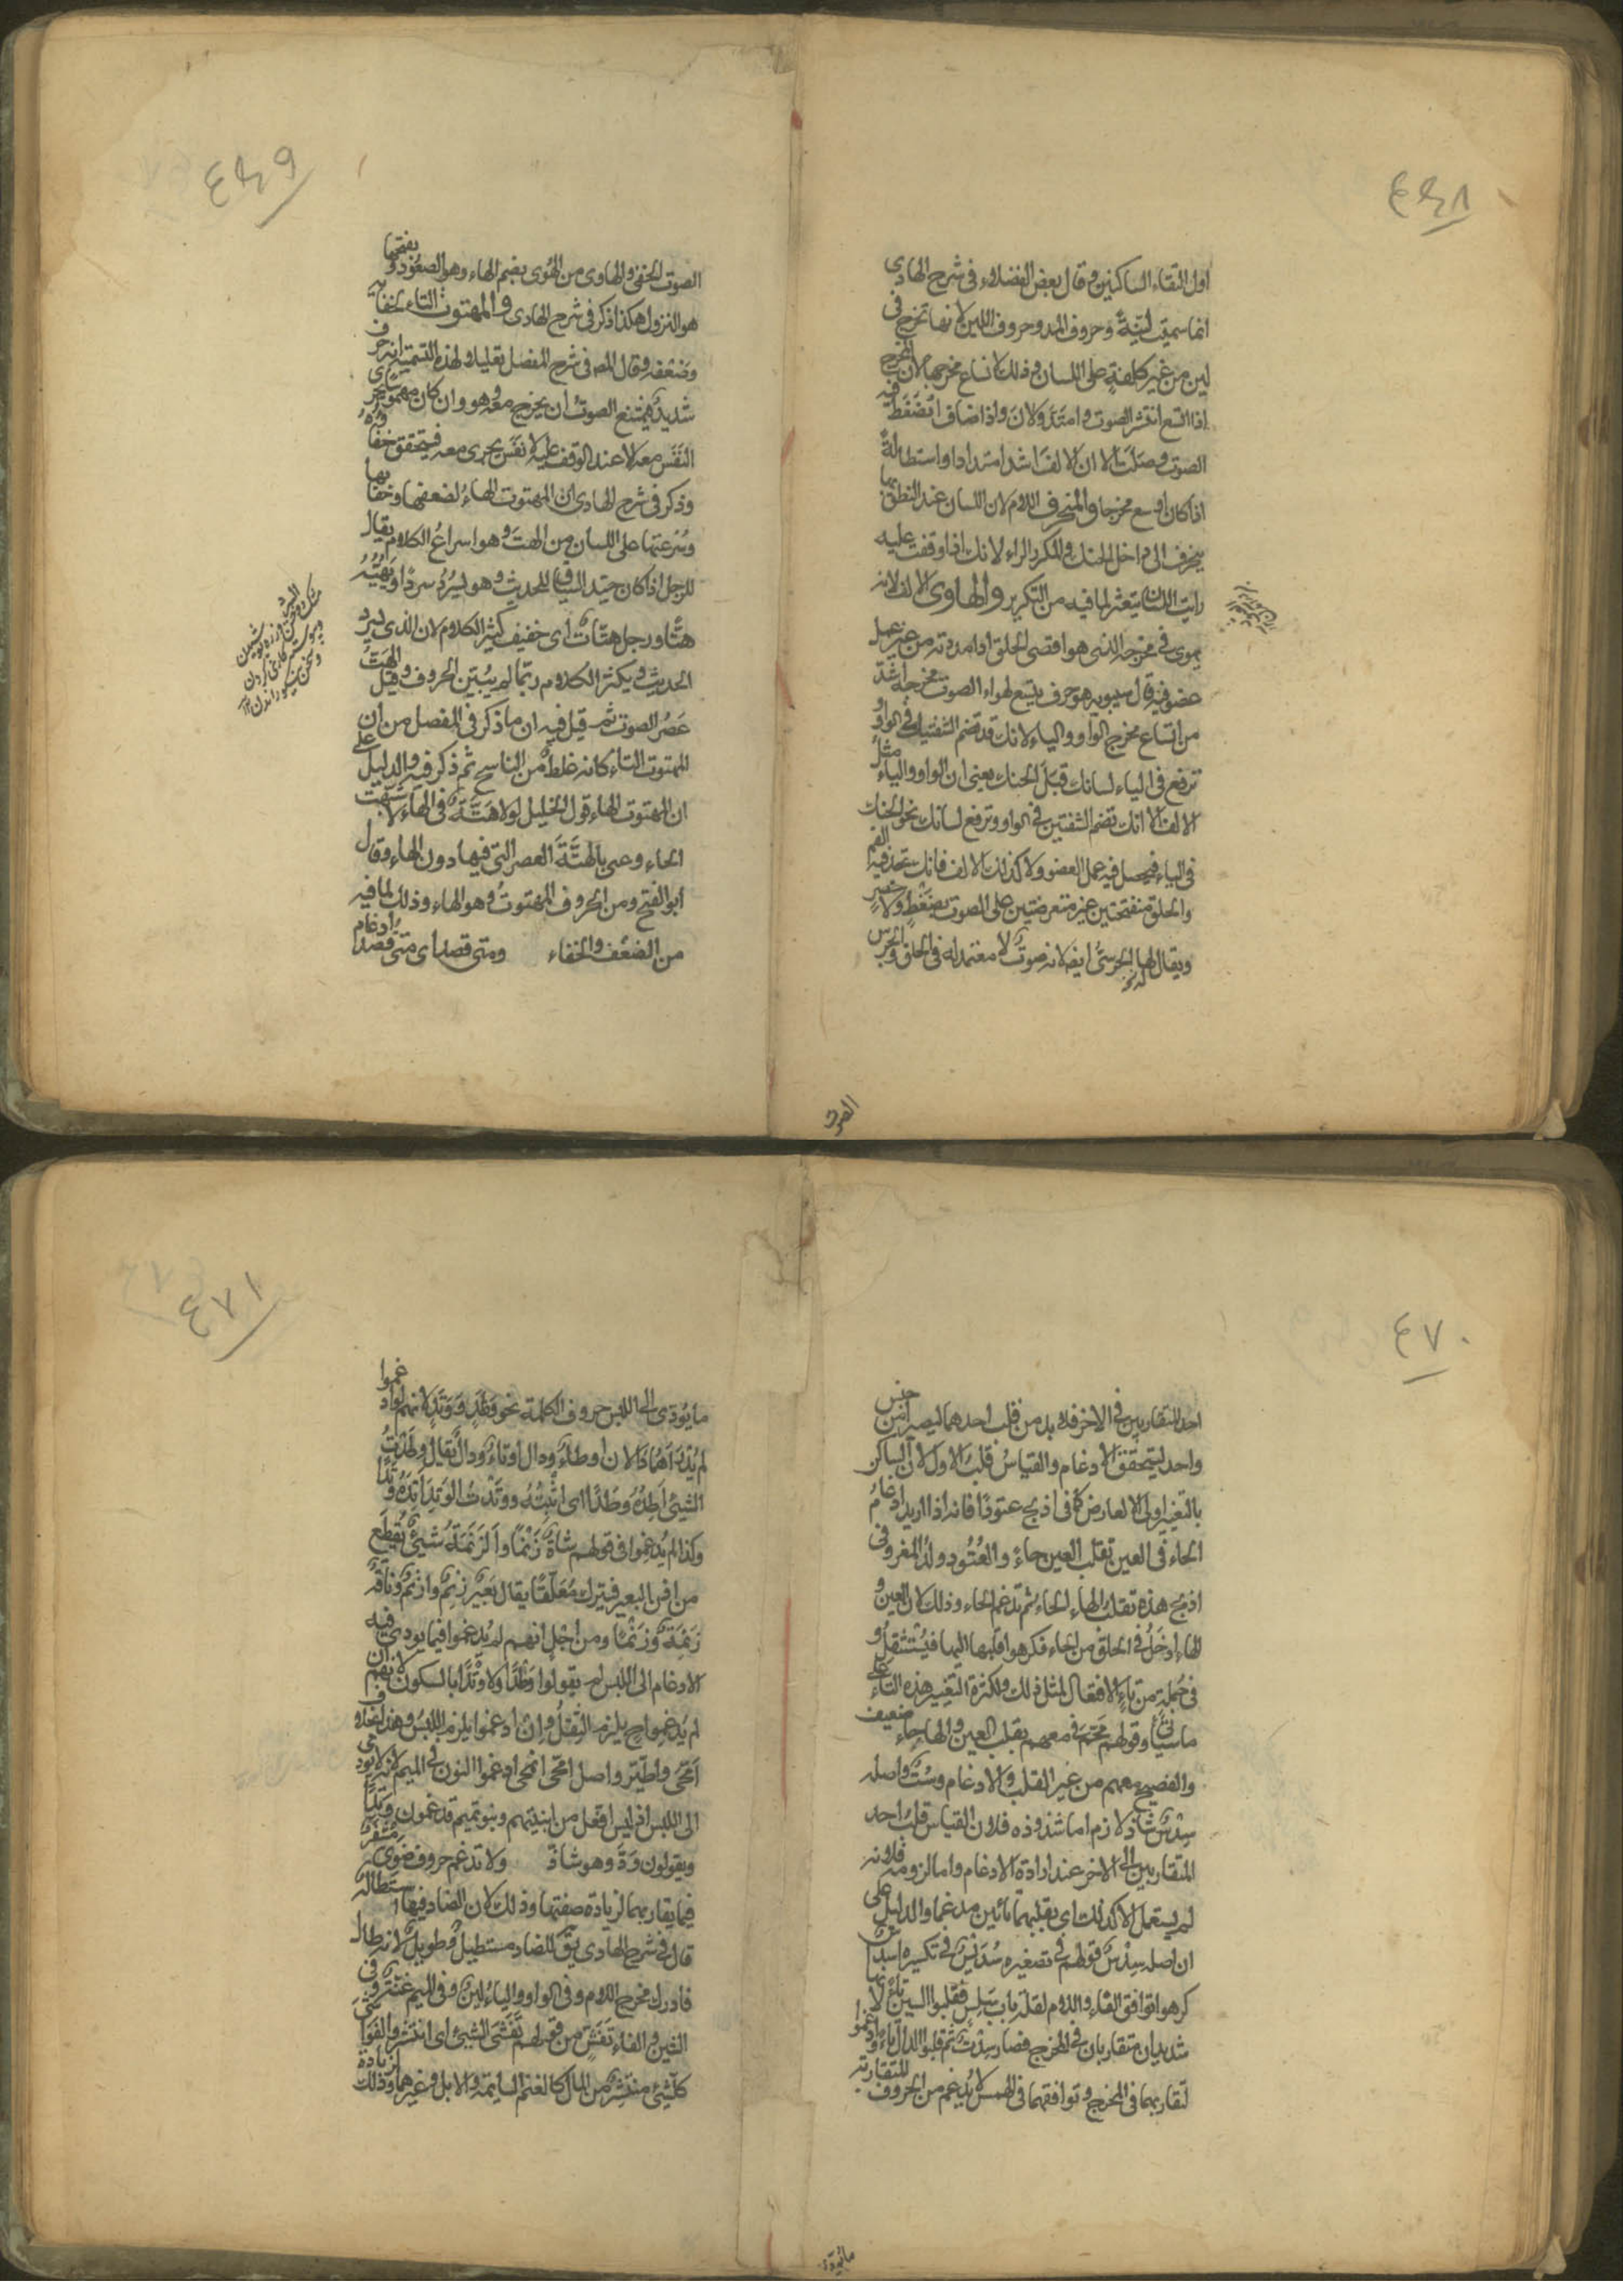 ٤٦٨
اول التقاء الساكنين وقال بعض الفضلاء فى شرح الهادى
انما سميت لينةً وحروف المد وحروف اللين لانها تخرج فى
لين من غير كلفةٍ على اللسان وذلك لاتساع مخرجها لان المخرج
اذا اتسع انتشر الصوت وامتدّ ولانَ واذا ضاف انضغط فيه
الصوت وصلت الا ان الالف اشد امتدادا واستطالةً
اذا كان اوسع مخرجا والمنحرف اللام لان اللسان عند النطق بها
ينحرف الى داخل الحنك والمكرر الراء لانك اذا وقفت عليه
رايت اللسان يتعثر لما فيه من التكرير والهاوى الالف لانه
يهوى فى مخرجه الذى هو اقصى الحلق اذا مددته من غير عمل
عضو فيه قال سيبويه هو حرف يتسع لهواء الصوت مخرجه اشدّ
من اتساع مخرج الواو والياء لانك قد تضم الشفتين فى الواو و
ترفع فى الياء لسانك قبل الحنك يعنى ان الواو والياء مثل
الالف الا انك تضم الشفتين فى الواو وترفع لسانك نحو الحنك
فى الياء فيحصل فيه عمل العضو ولا كذلك الالف فانك تجد فيه الفم
والحلق منفتحتين غير متعرضتين على الصوت بضغطٍ ولا عصرٍ
ويقال لها الجرسىّ ايضا لانه صوتٌ لا معتمد له فى الحلق والجرس
الصوت
٤٦٩
الصوت الخفى والهاوى من الهُوى بضم الهاء وهو الصعود وبفتحها
هو النزول هكذا ذكر فى شرح الهادى والمهتوت التاء لخفائه
وضعفه وقال المص فى شرح المفصل تعليلا لهذه التسمية انه حرف
شديد فيمتنع الصوتُ ان يخرج معه وهو وان كان مهموسا يجرى
النَفَس معه الا عند الوقف عليه لا نفَس يجرى معه فيتحقق خفاؤه
وذكر فى شرح الهادى ان المهتوت الهاء لضعفها وخفائها
وسُرعتها على اللسان من الهتّ وهو اسراع الكلام يقال
للرجل اذا كان جيّد السياق للحديث وهو يسرُدُ سردًا ويَهُتُّهُ
هتّا ورجل هتّاتٌ اى خفيف كثير الكلام لان الذى يسرد
الحديث ويكثر الكلام ربّما لم يبيّن الحروف وقيل الهتّ
عَصرُ الصوت ثم قيل فيه ان ما ذكر فى المفصل من ان
المهتوت التاء كانه غلطٌ من الناسخ ثم ذكر فيه والدليل على
ان المهتوت الهاء قول الخليل لولا هتّةٌ فى الهاء لاشبهت
الحاء وعنى بالهتّة العصر التى فيها دون الهاء وقال
ابو الفتح ومن الحروف المهتوتُ وهو الهاء وذلك لما فيه
من الضعف والخفاء ومتى قصد اى متى قصد ادغام
٤٧٠
احد المتقاربين فى الاخر فلا بد من قلب احدهما ليصير من جنس
واحد ليتحقق الادغام والقياس قلب الاول لان الساكن
بالتغيير اولى الا لعارض كما فى اذبح عتودًا فانه اذا اريد ادغام
الحاء فى العين تقلب العين حاءً والعُتُود ولدُ المعز وفى
اذبح هذه تقلب الهاء الحاء ثم تدغم الحاء وذلك لان العين و
الهاء ادخل فى الحلق من الحاء فكرهوا قلبها اليها فيستثقل و
فى جملةٍ من تاء الافتعال لمثل ذلك ولكثرة التغيير هذه التاء على
ما سياتى وقولهم محّم فى معهم بقلب العين والهاء حاء ضعيف
والفصيح معهم من غير القلب والادغام وستّ واصله
سِدْسٌ شاذ لازم اما شذوذه فلان القياس قلب احد
المتقاربين الى الاخر عند ارادة الادغام واما لزومه فلانه
لم يستعمل الا كذلك اى بقلبهما تائين مدغما والدليل على
ان اصله سِدْسٌ قولهم فى تصغيره سُدَيْسٌ وفى تكسيره اسداس
كرهوا توافق الفاء واللام لقلة باب سَلِس فقلبوا السين تاءً لانها
شديدان متقاربان فى المخرج فصار سِدْتٌ ثم قلبوا الدال تاءً وادغموا
لتقاربهما فى المخرج وتوافقهما فى الهمس لا يُدغم من الحروف المتقاربة
ما يؤدى
٤٧١
ما يُؤدى الى اللبس حروف الكلمة نحو وَطَدَ ووَتَدَ لانهم لو ادغموا
لم يُدرَ أهما دالان او طاءٌ ودال او تاءٌ ودال يقال وطدتُ
الشىء اَطِدُهُ وَطْدًا اى اثبتُّهُ ووتدتُ الوَتِدَ اَتِدُهُ وتْدًا
وكذا لم يُدغموا فى قولهم شاةٌ زَنْمَاءُ والزَنَمَةُ شىءٌ يُقطع
من اذن البعير فيترك مُعَلَّقًا يقال بَعيرٌ زَنِمٌ وازنمُ وناقة
زَنِمَةٌ وزنماء ومن اجل انهم لم يُدغموا فيما يودى فيه
الادغام الى اللبس لم يقولوا وطْدًا ولا وتْدًا بالسكون لانهم ان
لم يُدغموا ح يلزم الثِقلُ وان ادغموا يلزم اللبسُ وهذا بخلاف
اِمَّحى واطَّيَّر واصل امّحى انمحى ادغموا النون فى الميم لانه لا يودى
الى اللبس اذ ليس افَّعل من ابنيتهم وبنو تميم قد غمون وتدًا
ويقولون وَدَّ وهو شاذ ولا تدغم حروف ضَوِىَ مِشْفَرٌ
فيما يقاربها لزيادة صفتها وذلك لان الضاد فيها استطالة
قال فى شرح الهادى يق للضاد مستطيل وطويل لانه طال
فادرك مخرج اللام وفى الواو والياء لينٌ وفى الميم غنّةٌ وفى
الشين والفاء تَفَشٍّ من قولهم تَفَشّى الشىء اى انتشر والفواشى
كلّ شىءٍ منتشرٍ من المال كالغنم السايمة والابل وغيرهما وذلك لزيادة